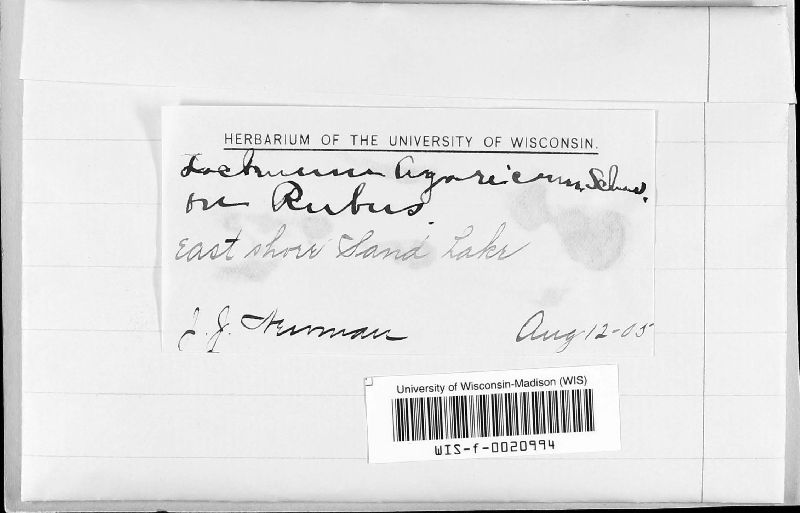 HERBARIUM OF THE UNIVERSITY OF WISCONSIN.
Schw.
on Rubus.
East shore Sand Lake
J. J. Neuman
Aug-12-05
University of Wisconsin-Madison (WIS)
WIS-f-0020994